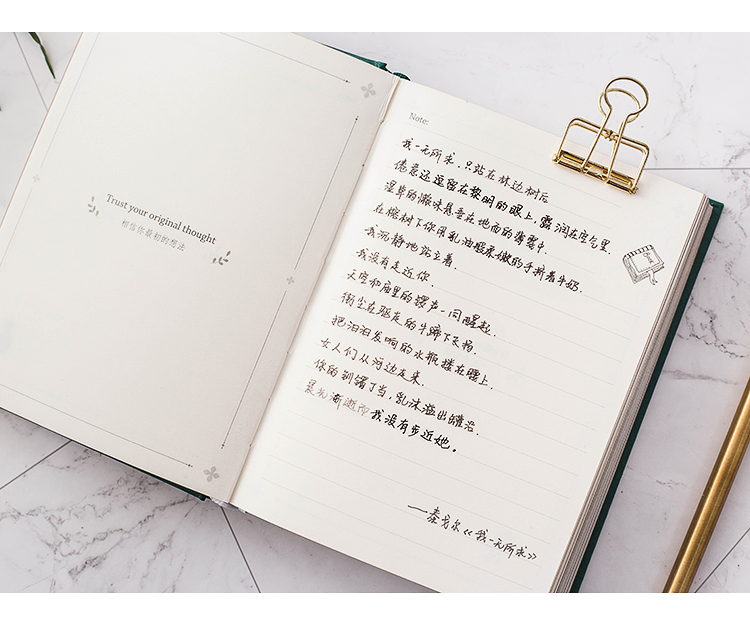 Trust your original thought
相信你最初的想法
Note:
我一无所求,只站在林边树后.
倦意还逗留在黎明的眼上,露润在空气里.
湿草的懒味悬垂在地面的薄雾中.
在榕树下你用乳油般柔嫩的手挤着牛奶.
我沉静地站立着.
我没有走近你.
天空和庙里的锣声一同醒起.
街尘在驱走的牛蹄下飞扬.
把汩汩发响的水瓶搂在腰上.
女人们从河边走来.
你的钏镯丁当,乳沫溢出罐沿.
晨光渐逝而我没有步近她。
——泰戈尔《我一无所求》